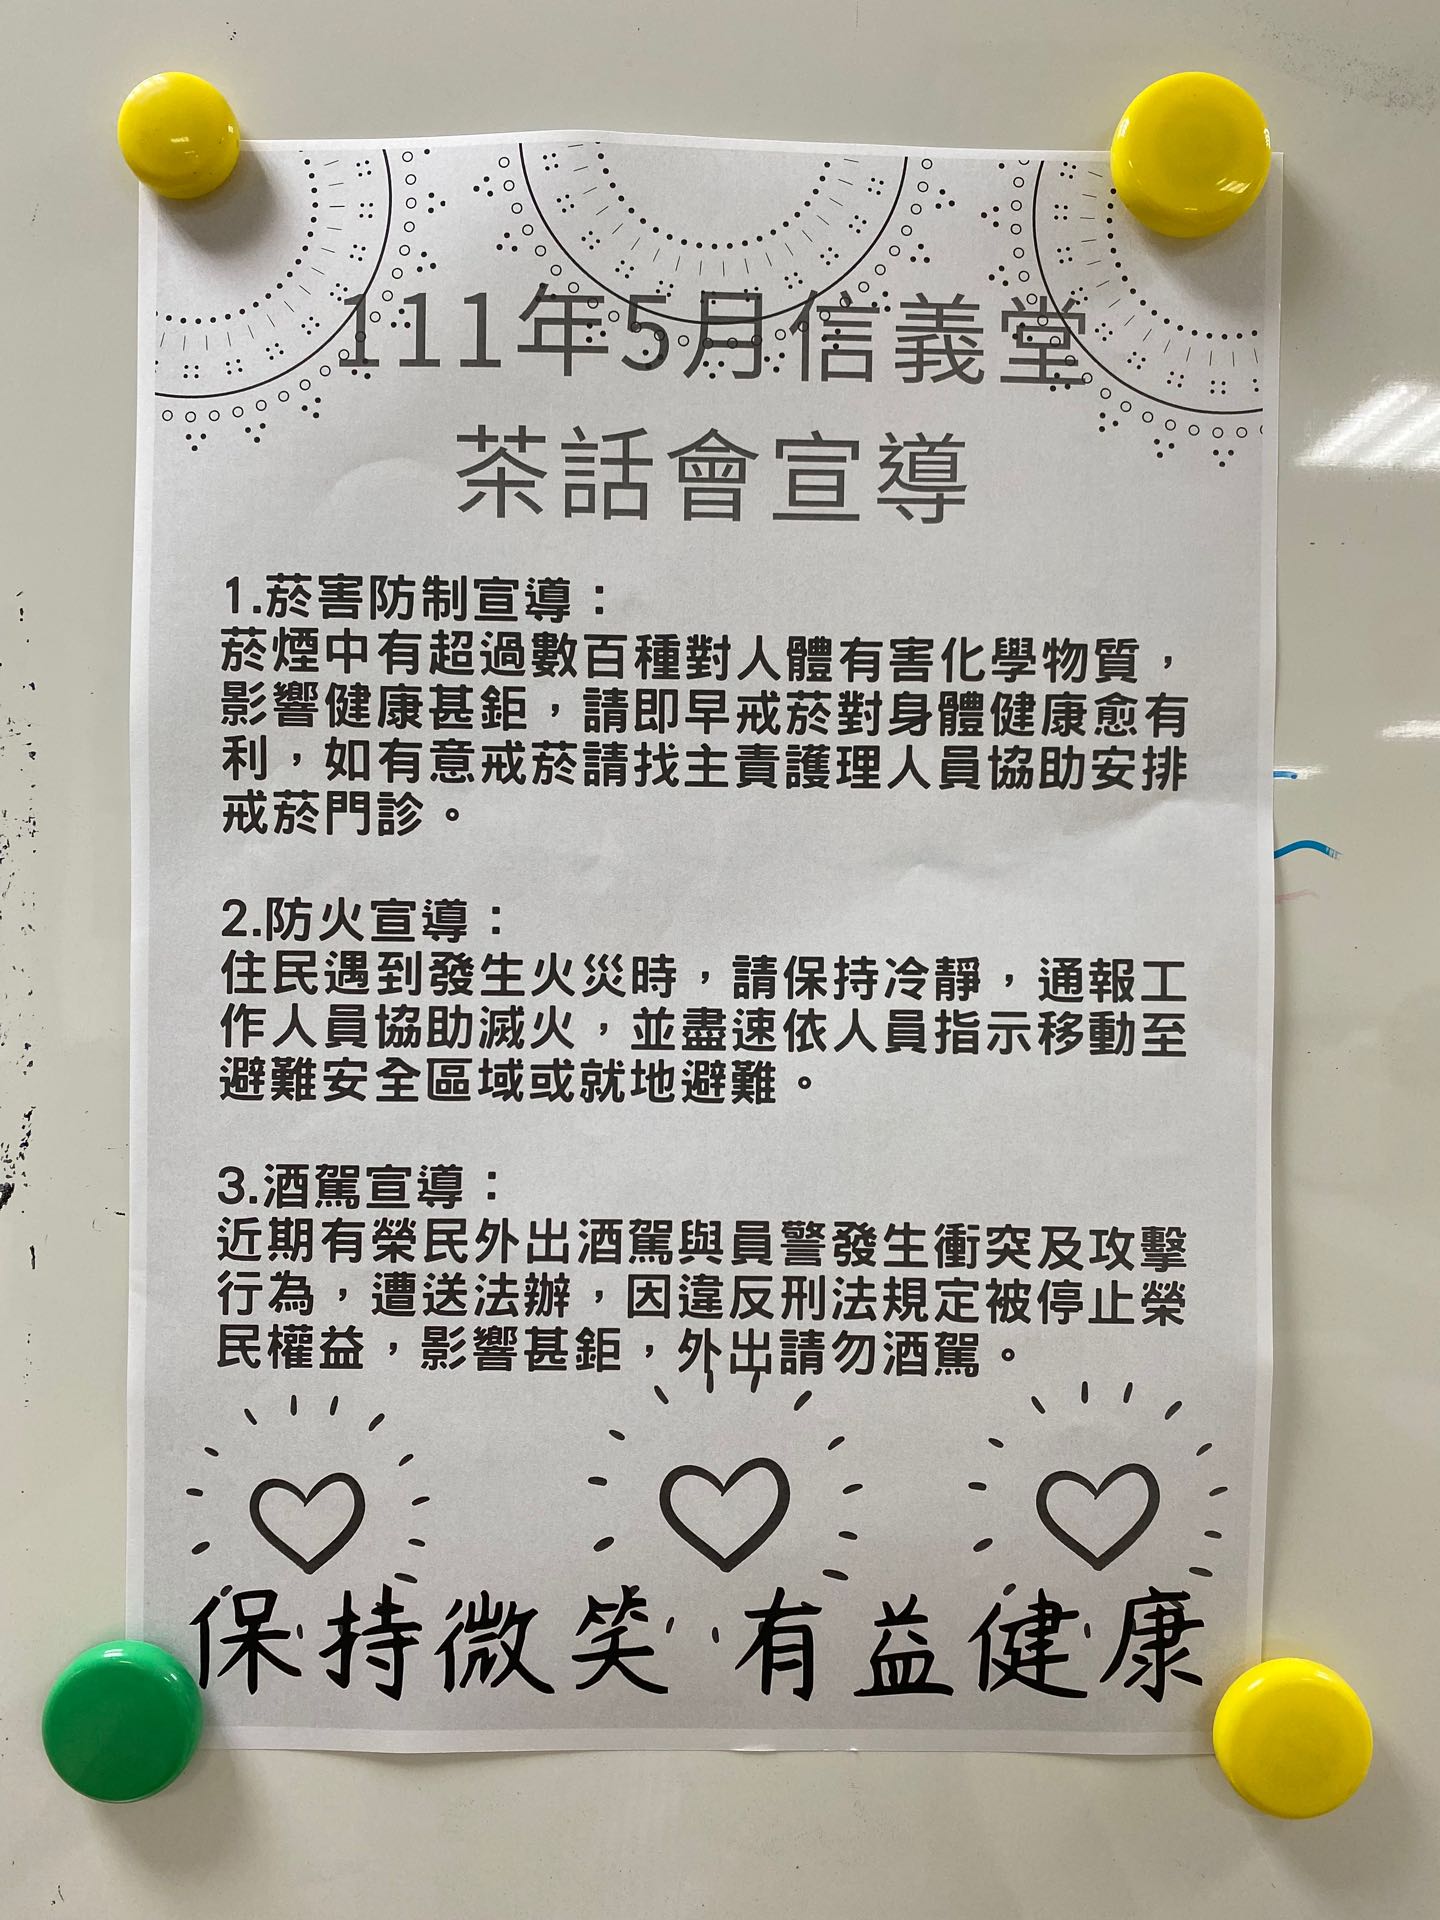 111年5月信義堂
茶話會宣導
1.菸害防制宣導：
菸煙中有超過數百種對人體有害化學物質，
影響健康甚鉅，請即早戒菸對身體健康愈有
利，如有意戒菸請找主責護理人員協助安排
戒菸門診。
2.防火宣導：
住民遇到發生火災時，請保持冷靜，通報工
作人員協助滅火，並盡速依人員指示移動至
避難安全區域或就地避難。
3.酒駕宣導：
近期有榮民外出酒駕與員警發生衝突及攻擊
行為，遭送法辦，因違反刑法規定被停止榮
民權益，影響甚鉅，外出請勿酒駕。
保持微笑 有益健康